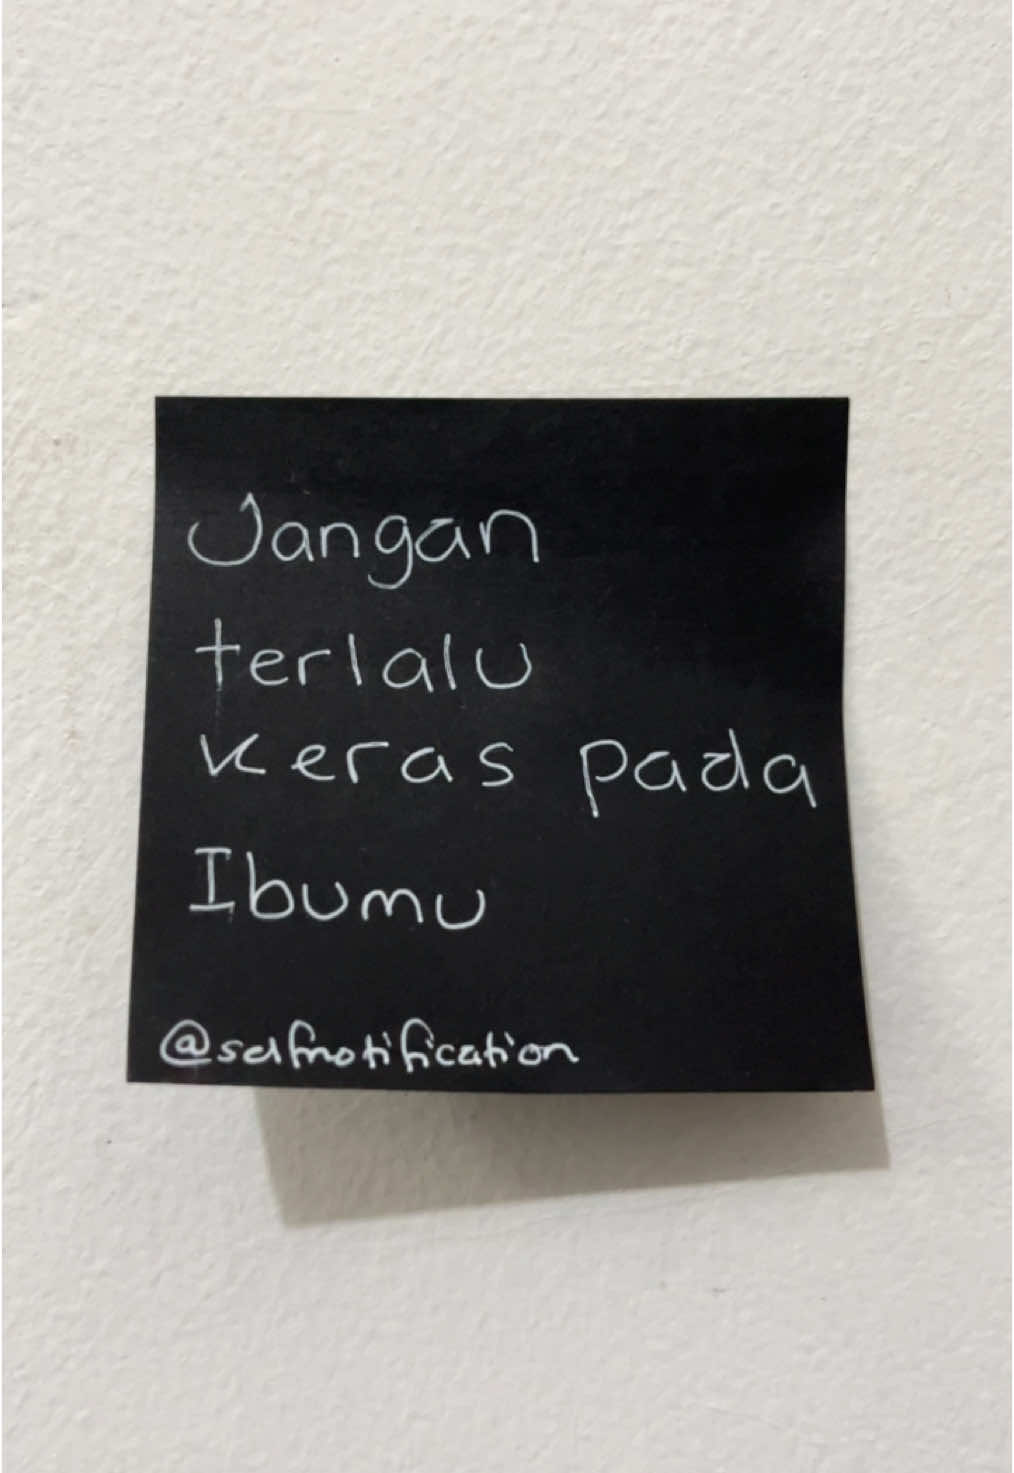 Jangan
terlalu
keras pada
Ibumu
@selfnotification